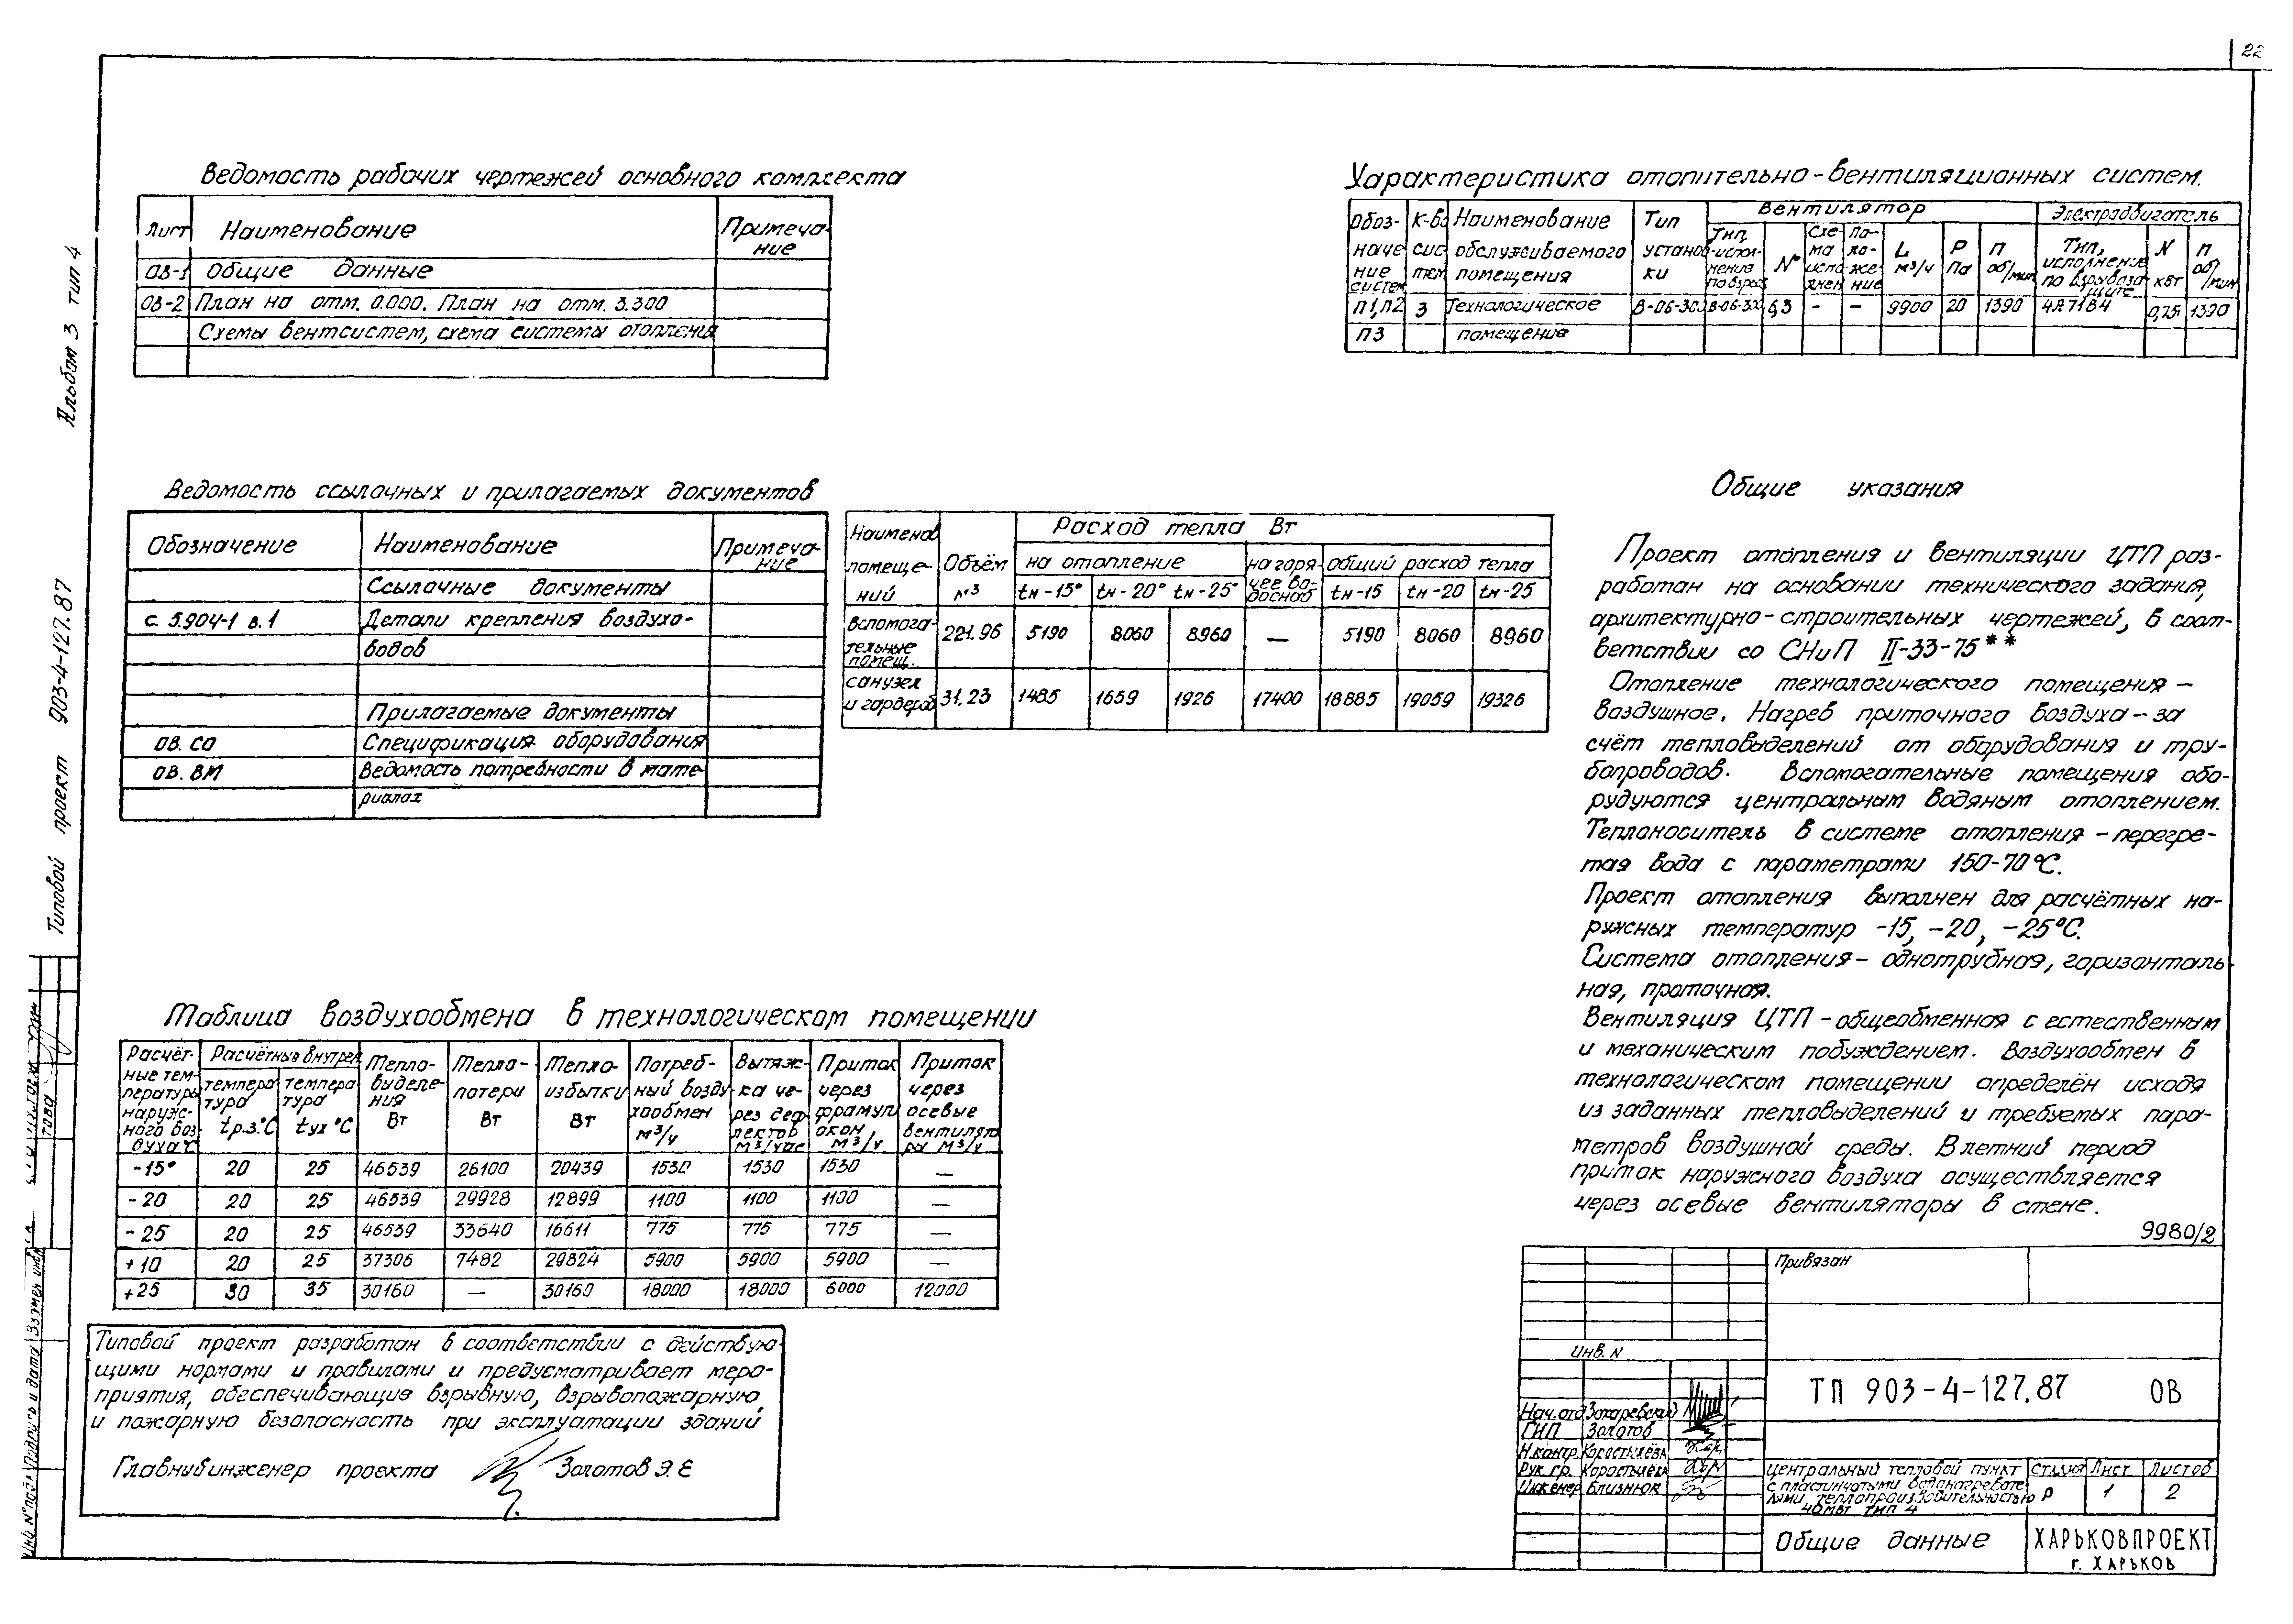 22
Альбом 3 тип 4
Типовой проект 903-4-127.87
Ведомость рабочих чертежей основного комплекта
Лист Наименование Примеча-
ние
ОВ-1 Общие данные
ОВ-2 План на отм. 0.000. План на отм. 3.300
Схемы вентсистем, схема системы отопления
Характеристика отопительно-вентиляционных систем.
Обоз-
наче
ние
систем
К-во
сис
тем
Наименование
обслуживаемого
помещения
Тип
установ
ки
Вентилятор
Тип,
-испол-
нение
по взрыв
№
Схе
ма
испо
лнен
По-
ло-
же-
ние
L
м³/ч
P
Па
п
об/мин
Электродвигатель
Тип,
исполнение
по взрывоза-
щите
N
кВт
п
об/мин
П1,П2 3 Технологическое В-06-300 В-06-300 6,3 - - 9900 20 1390 4А71В4 1390
П3 помещение
Ведомость ссылочных и прилагаемых документов
Обозначение Наименование Примеча-
ние
Ссылочные документы
с. 5.904-1 в.1 Детали крепления воздухо-
водов
Прилагаемые документы
ОВ. СО Спецификация оборудования
ОВ. ВМ Ведомость потребности в мате-
риалах
Наименов
помеще-
ний
Объём
м³
Расход тепла Вт
на отопление
на горя-
чее во-
доснаб
общий расход тепла
tн-15° tн-20° tн-25° tн-15 tн-20 tн-25
Вспомога-
тельные
помещ.
221.96 5190 8060 8960 — 5190 8060 8960
санузел
и гардероб
31.23 1485 1659 1926 17400 18885 19059 19326
Общие указания
Проект отопления и вентиляции ЦТП раз-
работан на основании технического задания,
архитектурно-строительных чертежей, в соот-
ветствии со СНиП II-33-75**
Отопление технологического помещения –
воздушное. Нагрев приточного воздуха – за
счёт тепловыделений от оборудования и тру-
бопроводов. Вспомогательные помещения обо-
рудуются центральным водяным отоплением.
Теплоноситель в системе отопления – перегре-
тая вода с параметрами 150-70°С.
Проект отопления выполнен для расчётных на-
ружных температур -15, -20, -25°С.
Система отопления – однотрубная, горизонталь-
ная, проточная.
Вентиляция ЦТП – общеобменная с естественным
и механическим побуждением. Воздухообмен в
технологическом помещении определён исходя
из заданных тепловыделений и требуемых пара-
метров воздушной среды. В летний период
приток наружного воздуха осуществляется
через осевые вентиляторы в стене.
9980/2
Таблица воздухообмена в технологическом помещении
Расчёт-
ные тем-
пературы
наруж-
ного воз
духа °С
Расчётные внутрен
темпера
тура
tр.з.°С
темпера
тура
tух °С
Тепло-
выделе-
ния
Вт
Тепло-
потери
Вт
Тепло-
избытки
Вт
Потреб-
ный возду-
хообмен
м³/ч
Вытяж-
ка че-
рез деф
лектор
м³/час
Приток
через
фрамуги
окон
м³/ч
Приток
через
осевые
вентилято
ры м³/ч
-15° 20 25 46539 26100 20439 1530 1530 1530 —
-20 20 25 46539 29928 12899 1100 1100 1100 —
-25 20 25 46539 33640 16611 775 775 775 —
+10 20 25 37306 7482 29824 5900 5900 5900 —
+25 30 35 30160 — 30160 18000 18000 6000 12000
Типовой проект разработан в соответствии с действую-
щими нормами и правилами и предусматривает меро-
приятия, обеспечивающие взрывную, взрывопожарную,
и пожарную безопасность при эксплуатации зданий
Главный инженер проекта Золотов Э.Е
Привязан
Инв. N
ТП 903-4-127.87 ОВ
Нач. отд
ГИП Золотов
Н.контр. Коростылёва
Рук. гр. Коростылёва
Инженер Близнюк
Центральный тепловой пункт
с пластинчатыми водонагревате-
лями теплопроизводительностью
40мвт тип 4
Стадия Лист Листов
Р 1 2
Общие данные
ХАРЬКОВПРОЕКТ
г. ХАРЬКОВ
Инв № подл Подпись и дата Взамен инв